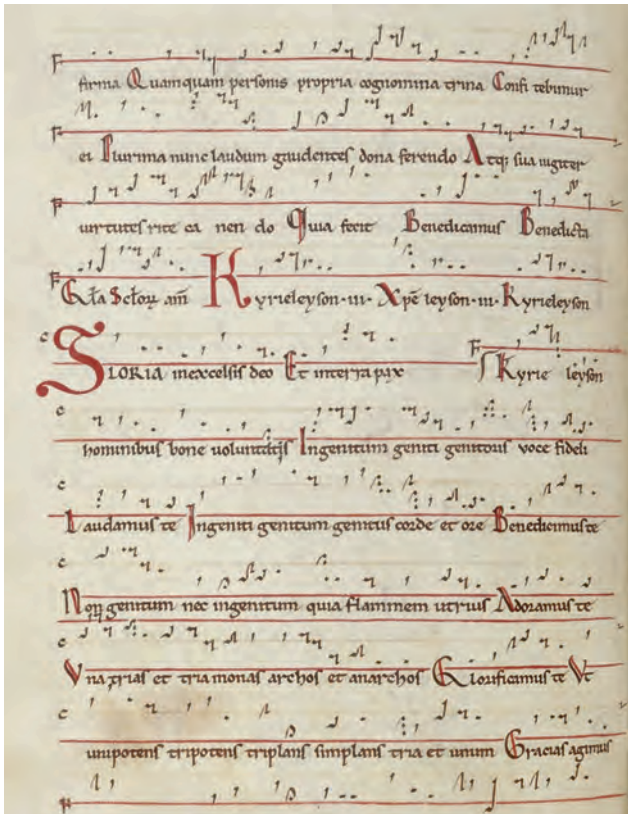 firma Quamquam personis propria cognomina trina Confi tebimur
ei Plurima nunc laudum gaudentes dona ferendo Atq; sua iugiter
uirtutes rite ca nen do Quia fecit Benedicamus Benedicta
Gła Scłoꝝ am̄ Kyrieleyson·iii· Xp̄e leyson·iii· Kyrieleyson
GLORIA in excelsis deo Et in terra pax
Kyrie leyson
hominibus bone uoluntatis Ingenitum geniti genitoris voce fideli
Laudamus te Ingeniti genitum genitus corde et ore Benedicimus te
Non genitum nec ingenitum quia flammem utrius Adoramus te
Vna et tria monas archos et anarchos Glorificamus te Vt
unipotens tripotens triplans simplans tria et unum Gracias agimus